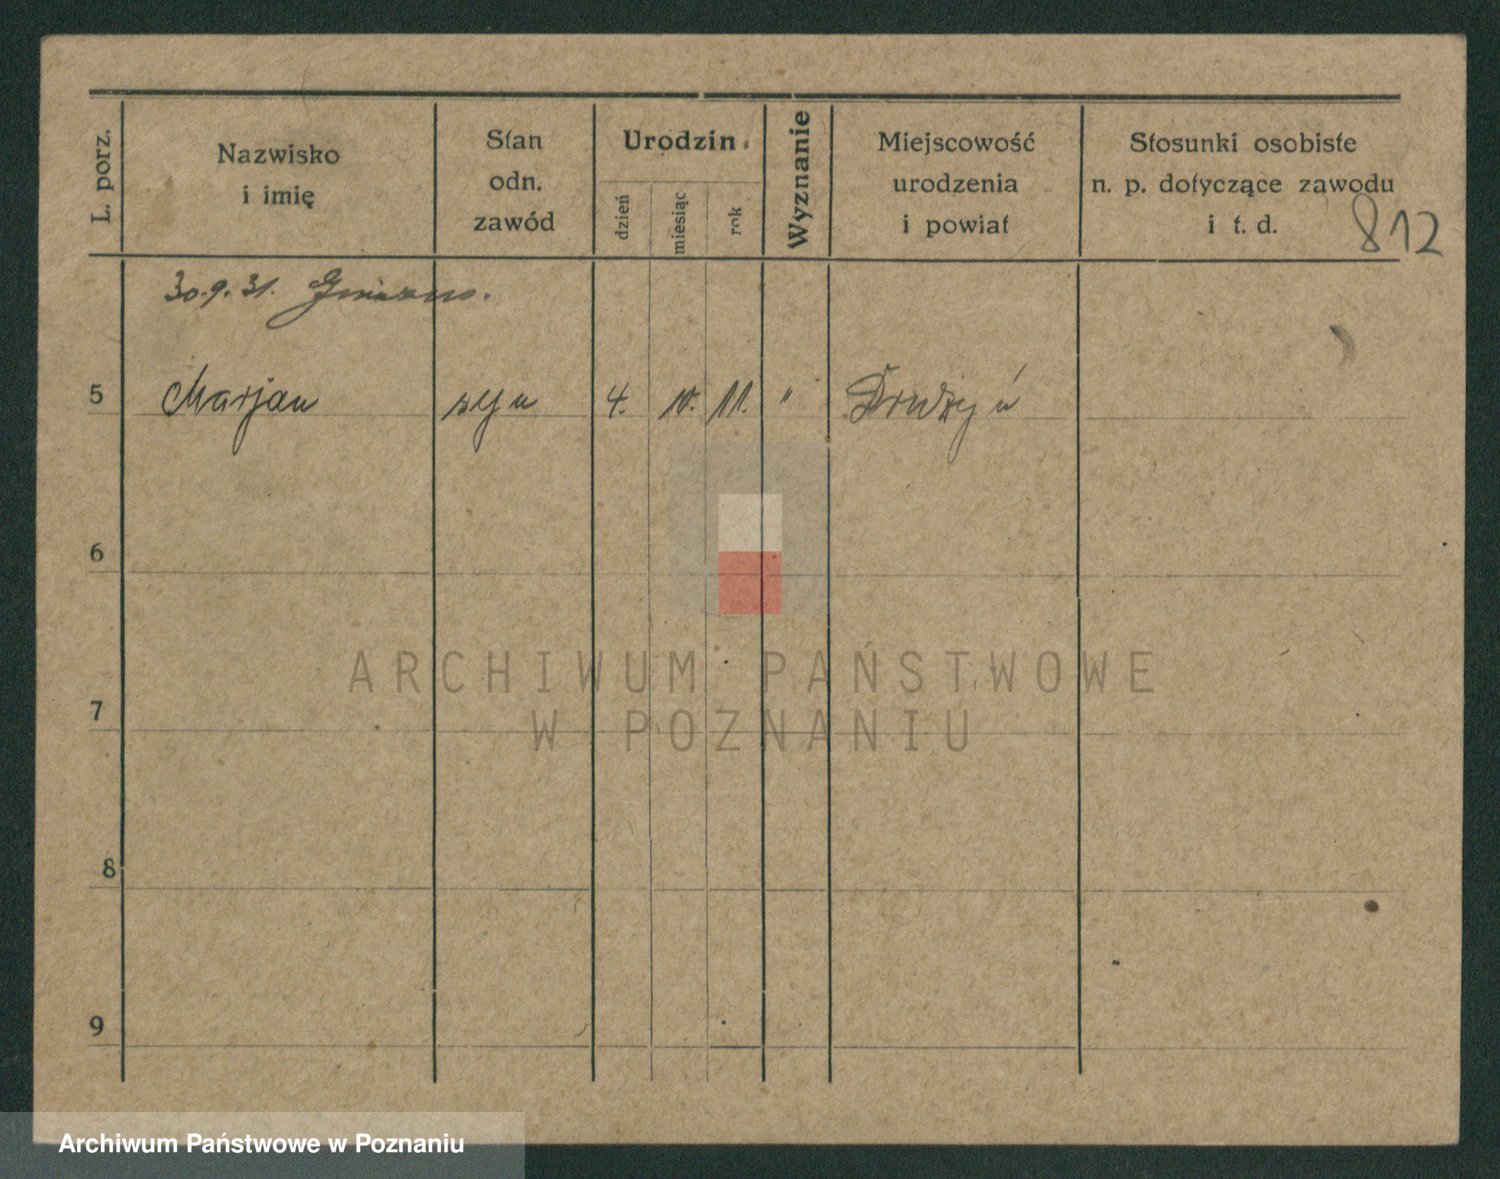 L. porz.
Nazwisko
i imię
Stan
odn.
zawód
Urodzin
dzień
miesiąc
rok
Wyznanie
Miejscowość
urodzenia
i powiat
Stosunki osobiste
n. p. dotyczące zawodu
i t. d.
812
30.9.31. Gniezno.
5 Marjan syn 4. 10. 11. "
6
7
8
9
ARCHIWUM PAŃSTWOWE
W POZNANIU
Archiwum Państwowe w Poznaniu